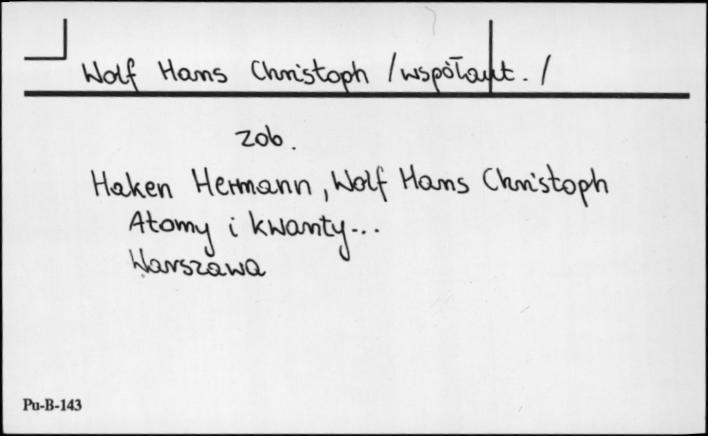 Wolf Hans Christoph /współaut./
zob.
Haken Hermann, Wolf Hans Christoph
Atomy i kwanty...
Warszawa
Pu-B-143